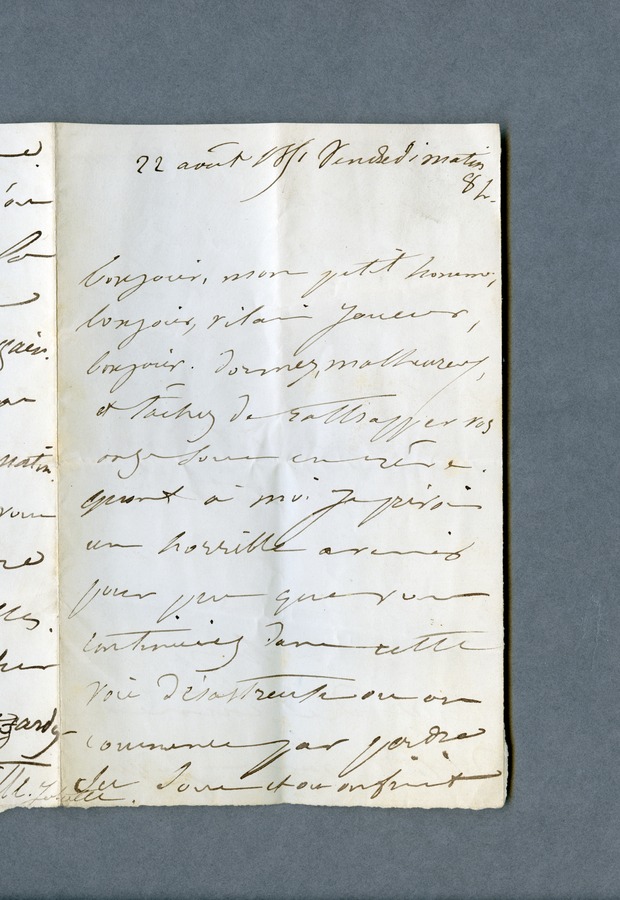 22 août 1851 Vendredi matin
8 h.
bonjour, mon petit homme,
bonjour, vilain joueur,
bonjour. dormez, malheureux,
et tâchez de rattrapper vos
onze sous en rêve.
quant à moi je prévois
un horrible avenir
pour peu que vous
continuiez dans cette
voie désastreuse ou on
commence par perdre
des sous et ou on finit
matin.
Juliette.